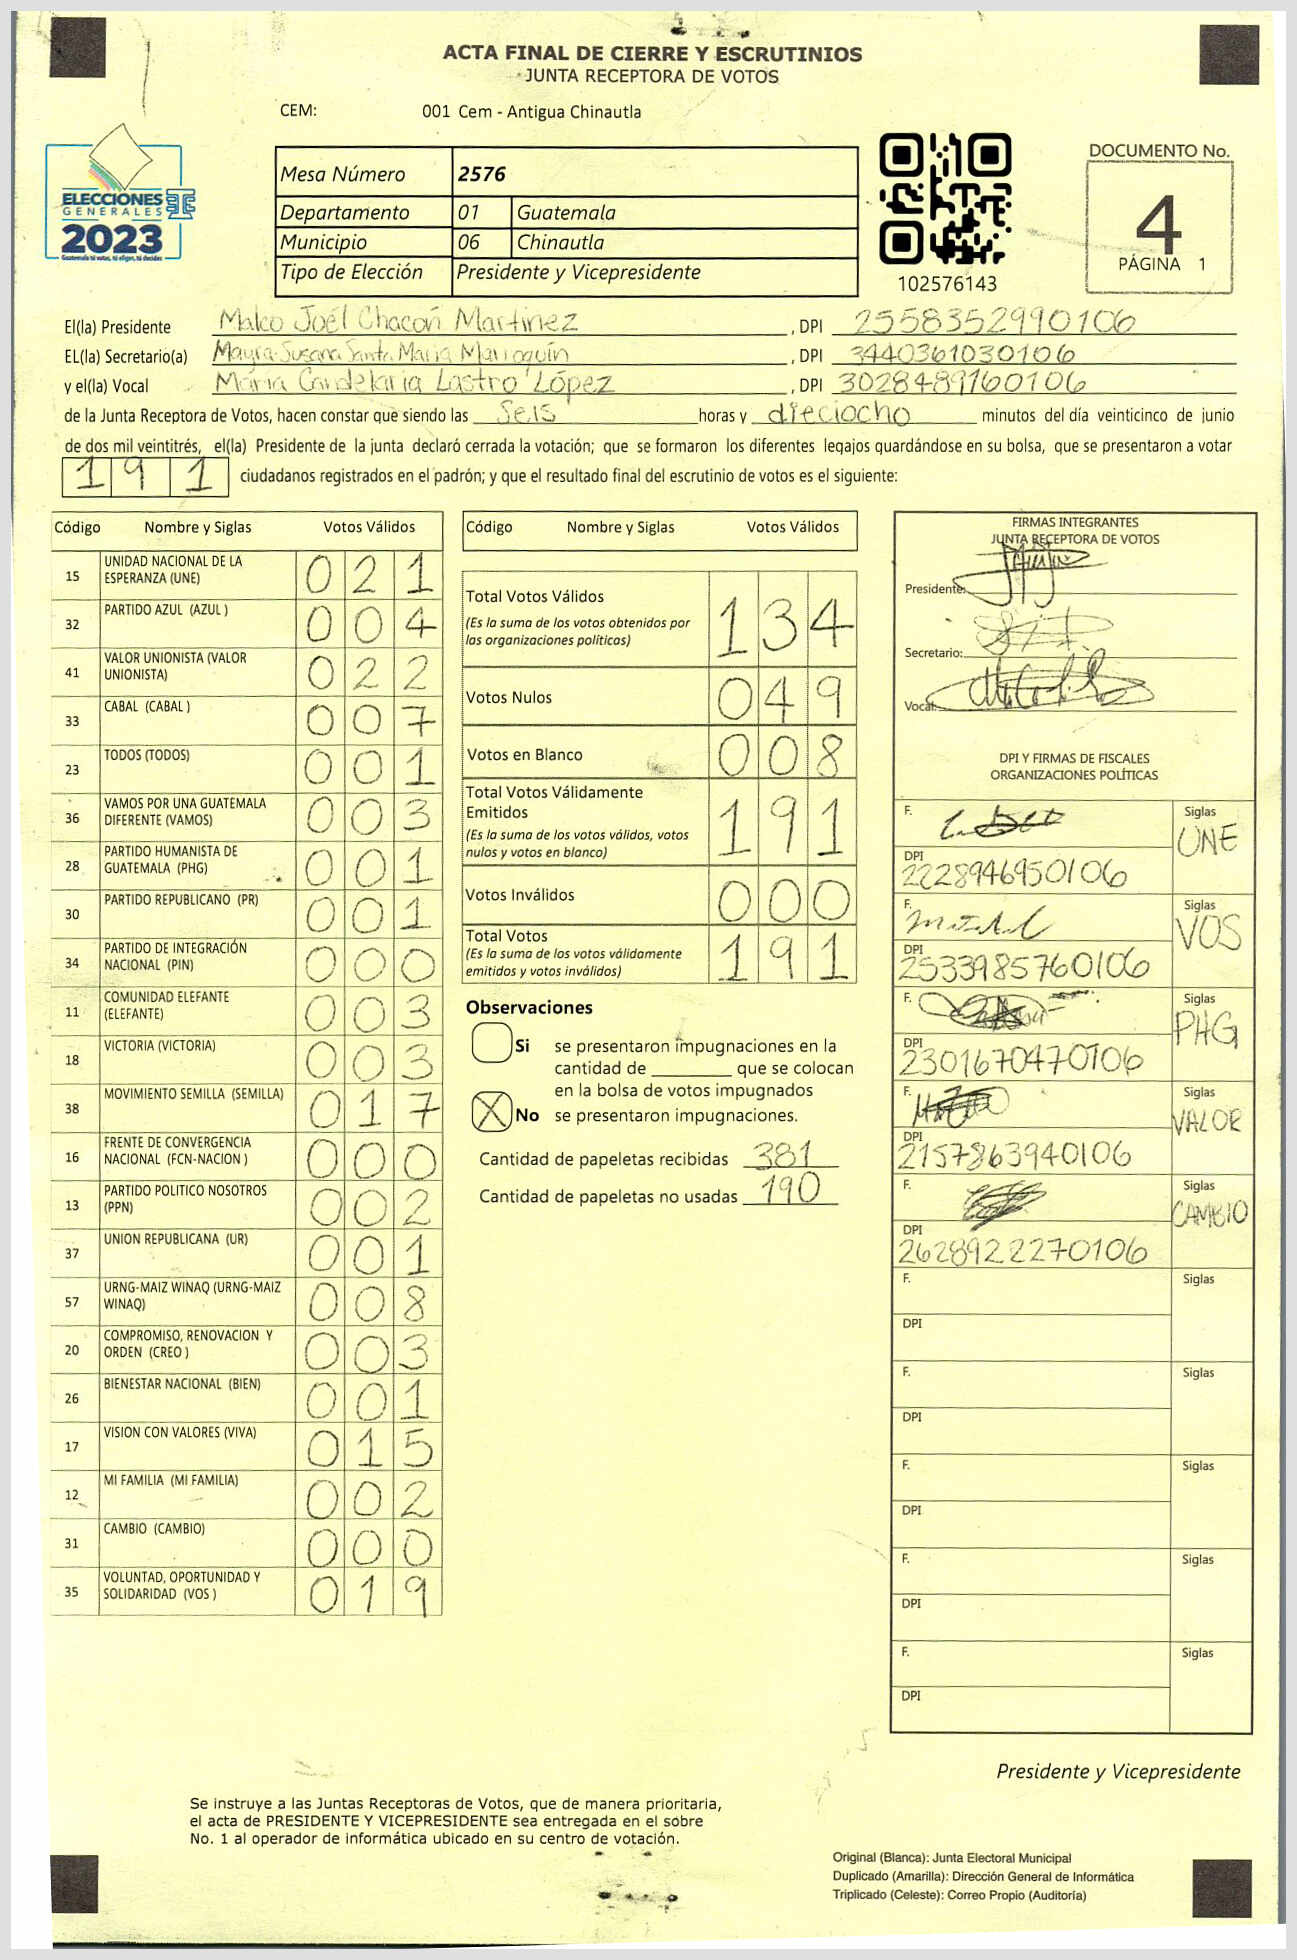 ACTA FINAL DE CIERRE Y ESCRUTINIOS
JUNTA RECEPTORA DE VOTOS
CEM: 001 Cem - Antigua Chinautla
ELECCIONES
GENERALES
2023
Guatemala tú votas, tú eliges, tú decides
Mesa Número 2576
Departamento 01 Guatemala
Municipio 06 Chinautla
Tipo de Elección Presidente y Vicepresidente
102576143
DOCUMENTO No.
4
PÁGINA 1
El(la) Presidente Malco Joél Chacoń Martinez, DPI 2558352990106
EL(la) Secretario(a) Mayra Susana Santa Maria Marroquín, DPI 3440361030106
y el(la) Vocal María Candelaria Lastro López, DPI 3028489760106
de la Junta Receptora de Votos, hacen constar que siendo las Seis horas y dieciocho minutos del día veinticinco de junio
de dos mil veintitrés, el(la) Presidente de la junta declaró cerrada la votación; que se formaron los diferentes legajos guardándose en su bolsa, que se presentaron a votar
191 ciudadanos registrados en el padrón; y que el resultado final del escrutinio de votos es el siguiente:
Código Nombre y Siglas Votos Válidos
15 UNIDAD NACIONAL DE LA
ESPERANZA (UNE) 021
32 PARTIDO AZUL (AZUL ) 004
41 VALOR UNIONISTA (VALOR
UNIONISTA) 022
33 CABAL (CABAL ) 007
23 TODOS (TODOS) 001
36 VAMOS POR UNA GUATEMALA
DIFERENTE (VAMOS) 003
28 PARTIDO HUMANISTA DE
GUATEMALA (PHG) 001
30 PARTIDO REPUBLICANO (PR) 001
34 PARTIDO DE INTEGRACIÓN
NACIONAL (PIN) 000
11 COMUNIDAD ELEFANTE
(ELEFANTE) 003
18 VICTORIA (VICTORIA) 003
38 MOVIMIENTO SEMILLA (SEMILLA) 017
16 FRENTE DE CONVERGENCIA
NACIONAL (FCN-NACION ) 000
13 PARTIDO POLITICO NOSOTROS
(PPN) 002
37 UNION REPUBLICANA (UR) 001
57 URNG-MAIZ WINAQ (URNG-MAIZ
WINAQ) 008
20 COMPROMISO, RENOVACION Y
ORDEN (CREO ) 003
26 BIENESTAR NACIONAL (BIEN) 001
17 VISION CON VALORES (VIVA) 015
12 MI FAMILIA (MI FAMILIA) 002
31 CAMBIO (CAMBIO) 000
35 VOLUNTAD, OPORTUNIDAD Y
SOLIDARIDAD (VOS ) 019
Código Nombre y Siglas Votos Válidos
Total Votos Válidos 134
(Es la suma de los votos obtenidos por
las organizaciones políticas)
Votos Nulos 049
Votos en Blanco 008
Total Votos Válidamente
Emitidos 191
(Es la suma de los votos válidos, votos
nulos y votos en blanco)
Votos Inválidos 000
Total Votos 191
(Es la suma de los votos válidamente
emitidos y votos inválidos)
Observaciones
Si se presentaron impugnaciones en la
cantidad de ________ que se colocan
en la bolsa de votos impugnados
X No se presentaron impugnaciones.
Cantidad de papeletas recibidas 381
Cantidad de papeletas no usadas 190
FIRMAS INTEGRANTES
JUNTA RECEPTORA DE VOTOS
Presidente:
Secretario:
Vocal:
DPI Y FIRMAS DE FISCALES
ORGANIZACIONES POLÍTICAS
F. Siglas
UNE
DPI
2228946950106
F. Siglas
VOS
DPI
2533985760106
F. Siglas
PHG
DPI
2301670470106
F. Siglas
VALOR
DPI
2157863940106
F. Siglas
CAMBIO
DPI
2628922270106
F. Siglas
DPI
F. Siglas
DPI
F. Siglas
DPI
F. Siglas
DPI
F. Siglas
DPI
Presidente y Vicepresidente
Se instruye a las Juntas Receptoras de Votos, que de manera prioritaria,
el acta de PRESIDENTE Y VICEPRESIDENTE sea entregada en el sobre
No. 1 al operador de informática ubicado en su centro de votación.
Original (Blanca): Junta Electoral Municipal
Duplicado (Amarilla): Dirección General de Informática
Triplicado (Celeste): Correo Propio (Auditoría)